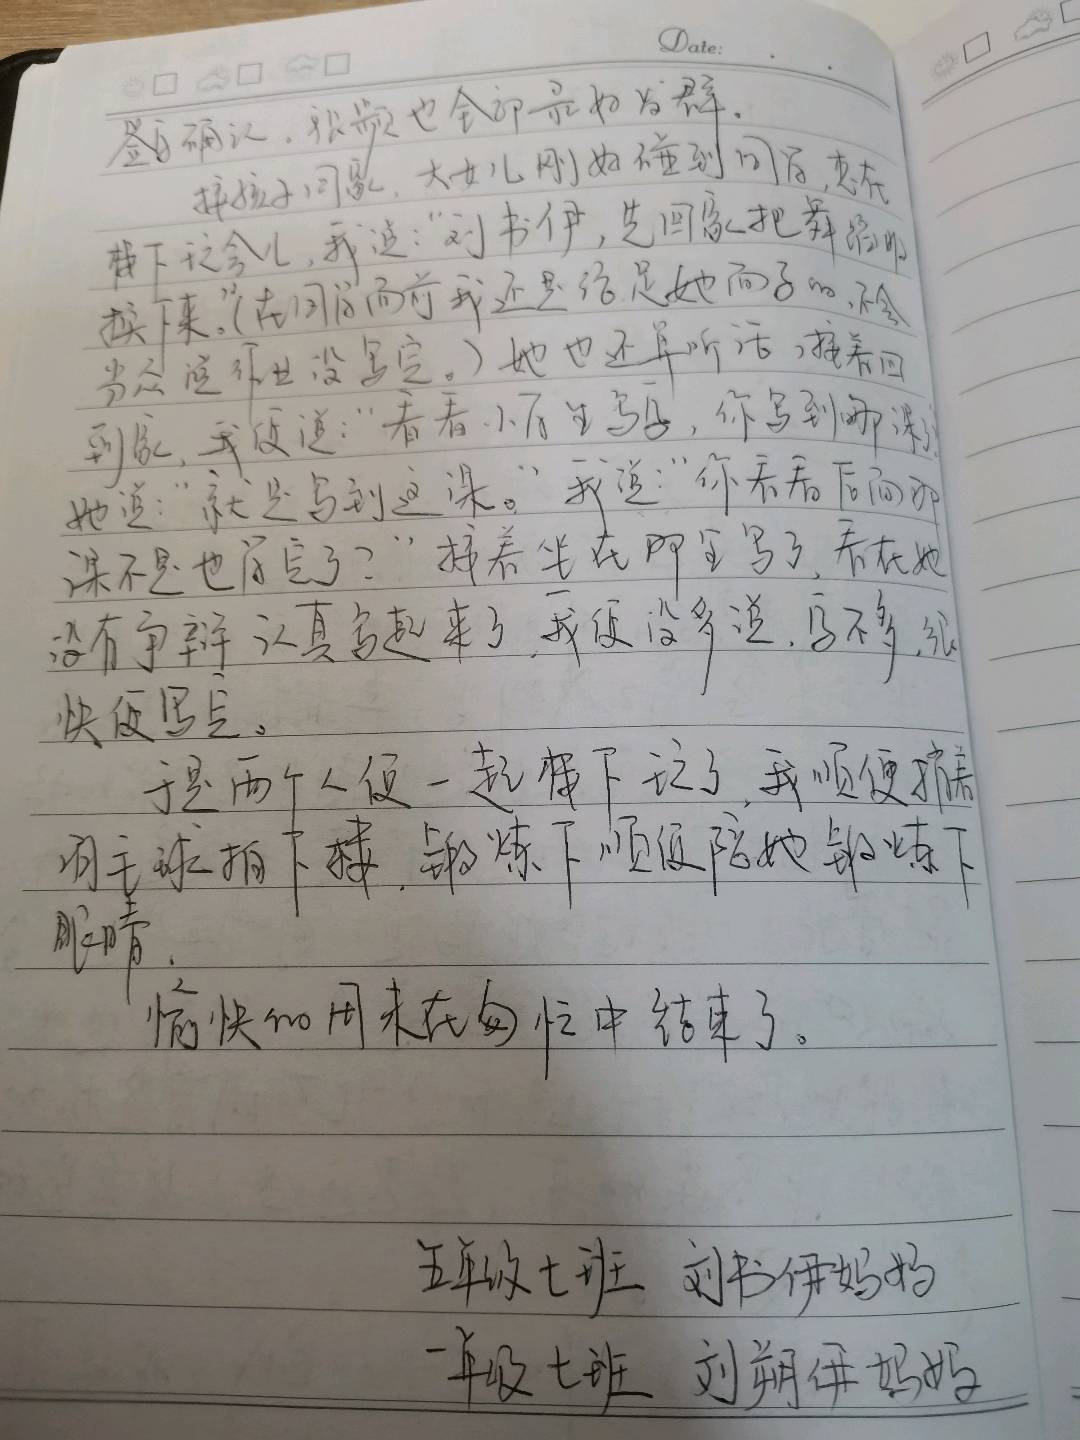 Date:
签字确认，视频也全部录好发群。
接孩子回家，大女儿刚好碰到同学，想在
楼下玩会儿，我说：“刘书伊，先回家把舞蹈服
换下来。”（在同学面前我还是给足她面子的，不会
当众说作业没写完。）她也还算听话，接着回
到家，我便说：“看看小古生写字，你写到哪课了
她说：“就是写到这课。”我说：“你看看后面那
课不是也学完了？”接着坐在那里写了，看在她
没有争辩认真写起来了，我便没多说，写不多，很
快便写完。
于是两个人便一起楼下玩了，我顺便捎着
羽毛球拍下楼，锻炼下顺便陪她锻炼下
眼睛，
愉快的周末在匆忙中结束了。
五年级七班 刘书伊妈妈
一年级七班 刘朔伊妈妈